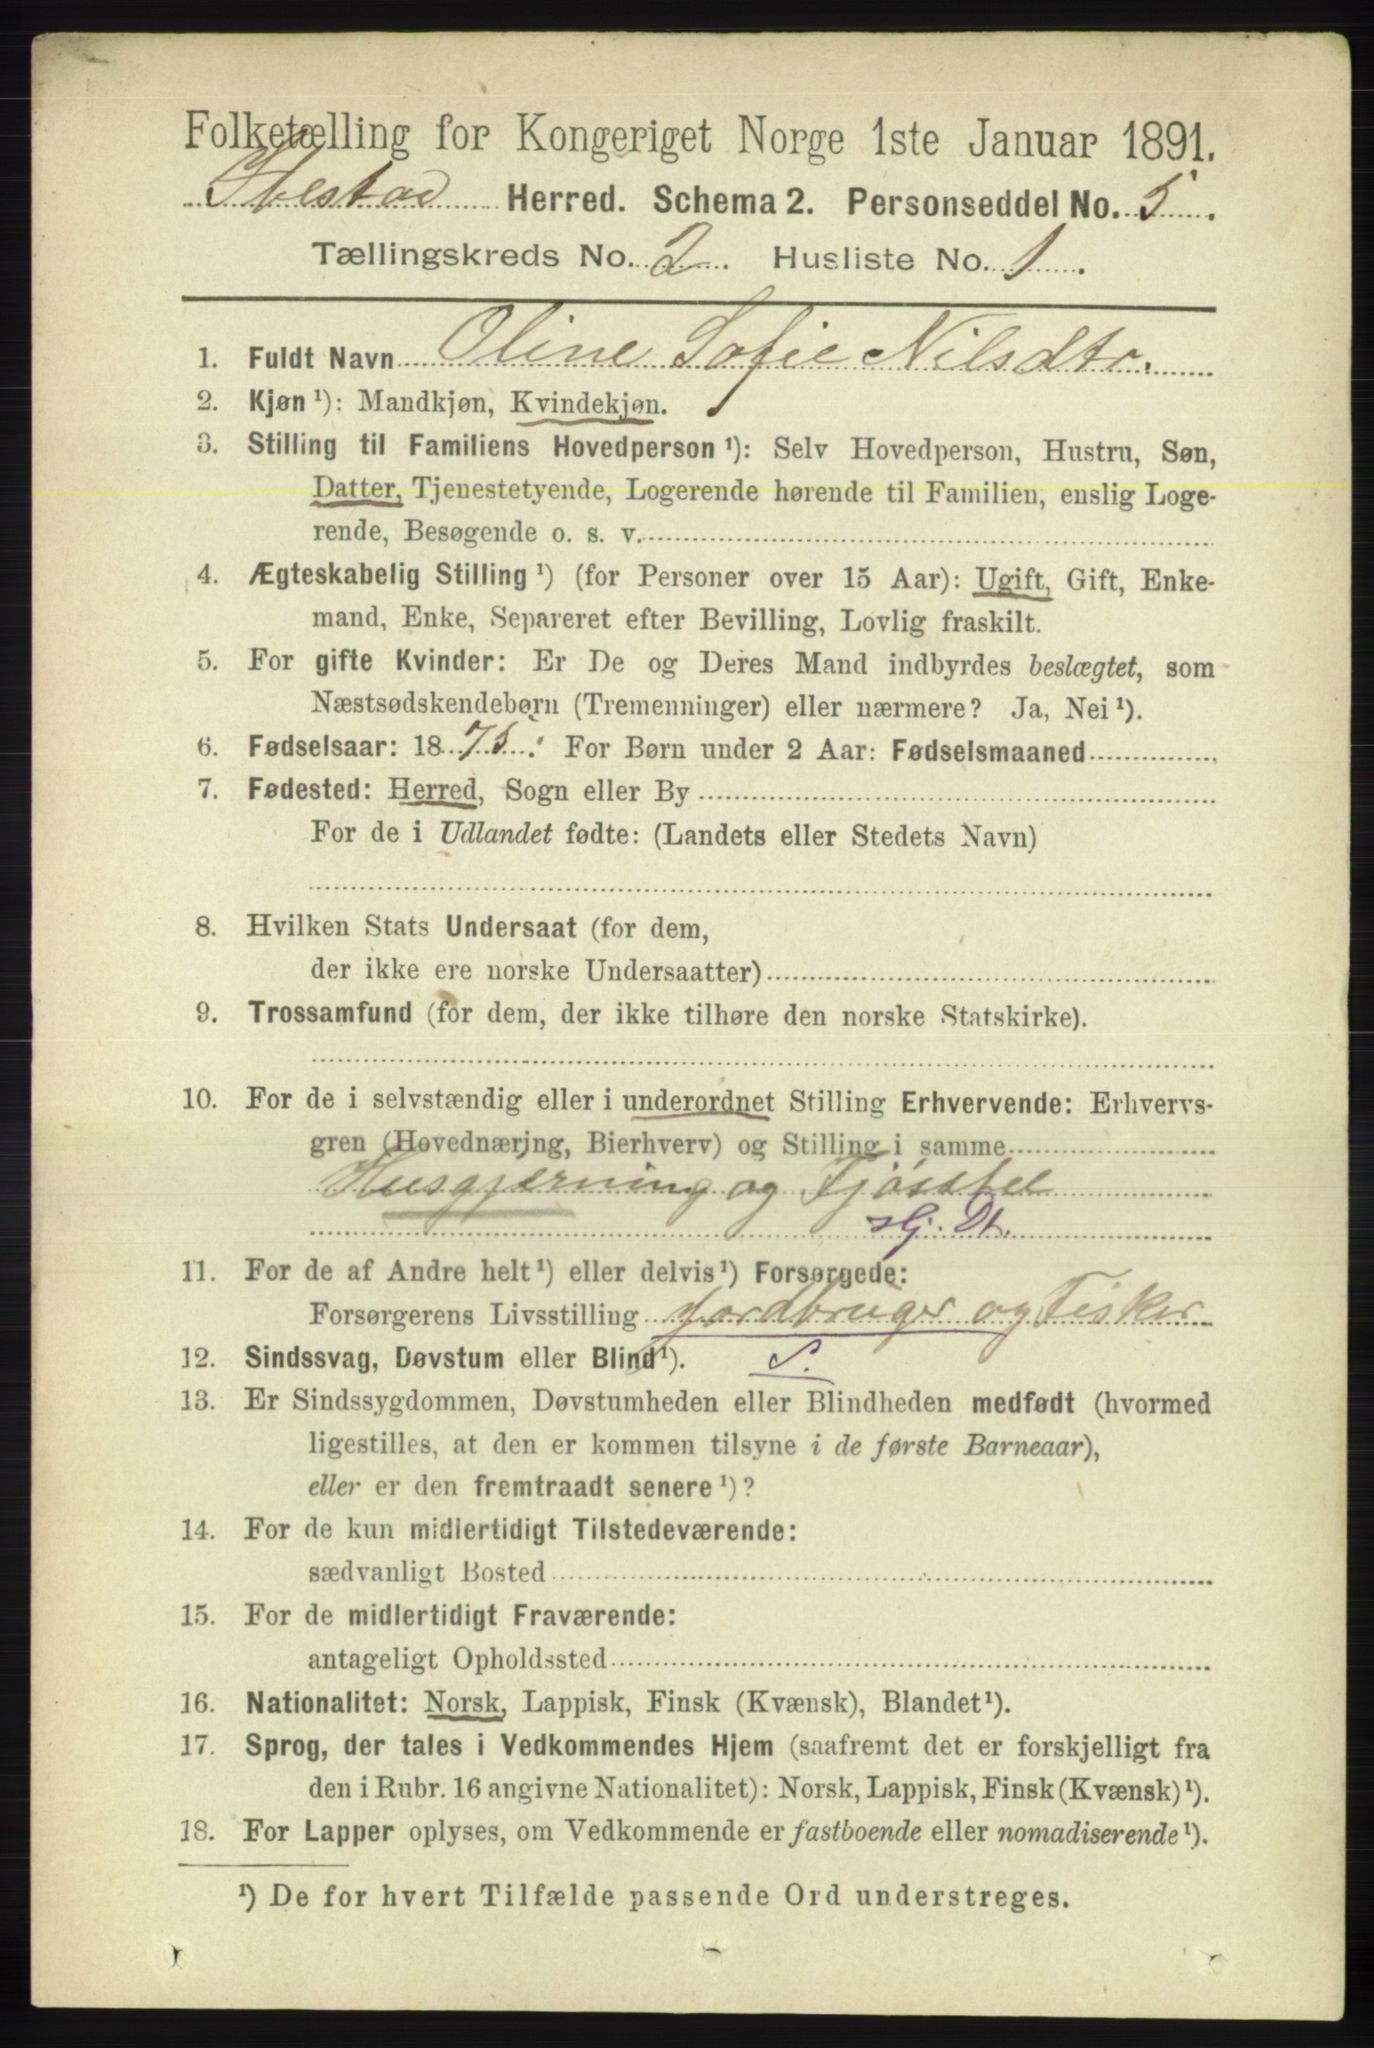 Folketælling for Kongeriget Norge 1ste Januar 1891.
Ibestad Herred. Schema 2. Personseddel No. 5.
Tællingskreds No. 2. Husliste No. 1.
1. Fuldt Navn Oline Sofie Nilsdtr.
2. Kjøn ¹): Mandkjøn, Kvindekjøn.
3. Stilling til Familiens Hovedperson ¹): Selv Hovedperson, Hustru, Søn,
Datter, Tjenestetyende, Logerende hørende til Familien, enslig Loge-
rende, Besøgende o. s. v.
4. Ægteskabelig Stilling ¹) (for Personer over 15 Aar): Ugift, Gift, Enke-
mand, Enke, Separeret efter Bevilling, Lovlig fraskilt.
5. For gifte Kvinder: Er De og Deres Mand indbyrdes beslægtet, som
Næstsødskendebørn (Tremenninger) eller nærmere? Ja, Nei ¹).
6. Fødselsaar: 1875. For Børn under 2 Aar: Fødselsmaaned
7. Fødested: Herred, Sogn eller By
For de i Udlandet fødte: (Landets eller Stedets Navn)
8. Hvilken Stats Undersaat (for dem,
der ikke ere norske Undersaatter)
9. Trossamfund (for dem, der ikke tilhøre den norske Statskirke).
10. For de i selvstændig eller i underordnet Stilling Erhvervende: Erhvervs-
gren (Hovednæring, Bierhverv) og Stilling i samme
Husgjerning og Fjøsstel
hj. Dt.
11. For de af Andre helt ¹) eller delvis ¹) Forsørgede:
Forsørgerens Livsstilling Jordbruger og Fisker
12. Sindssvag, Døvstum eller Blind ¹). S.
13. Er Sindssygdommen, Døvstumheden eller Blindheden medfødt (hvormed
ligestilles, at den er kommen tilsyne i de første Barneaar),
eller er den fremtraadt senere ¹)?
14. For de kun midlertidigt Tilstedeværende:
sædvanligt Bosted
15. For de midlertidigt Fraværende:
antageligt Opholdssted
16. Nationalitet: Norsk, Lappisk, Finsk (Kvænsk), Blandet ¹).
17. Sprog, der tales i Vedkommendes Hjem (saafremt det er forskjelligt fra
den i Rubr. 16 angivne Nationalitet): Norsk, Lappisk, Finsk (Kvænsk) ¹).
18. For Lapper oplyses, om Vedkommende er fastboende eller nomadiserende ¹).
¹) De for hvert Tilfælde passende Ord understreges.